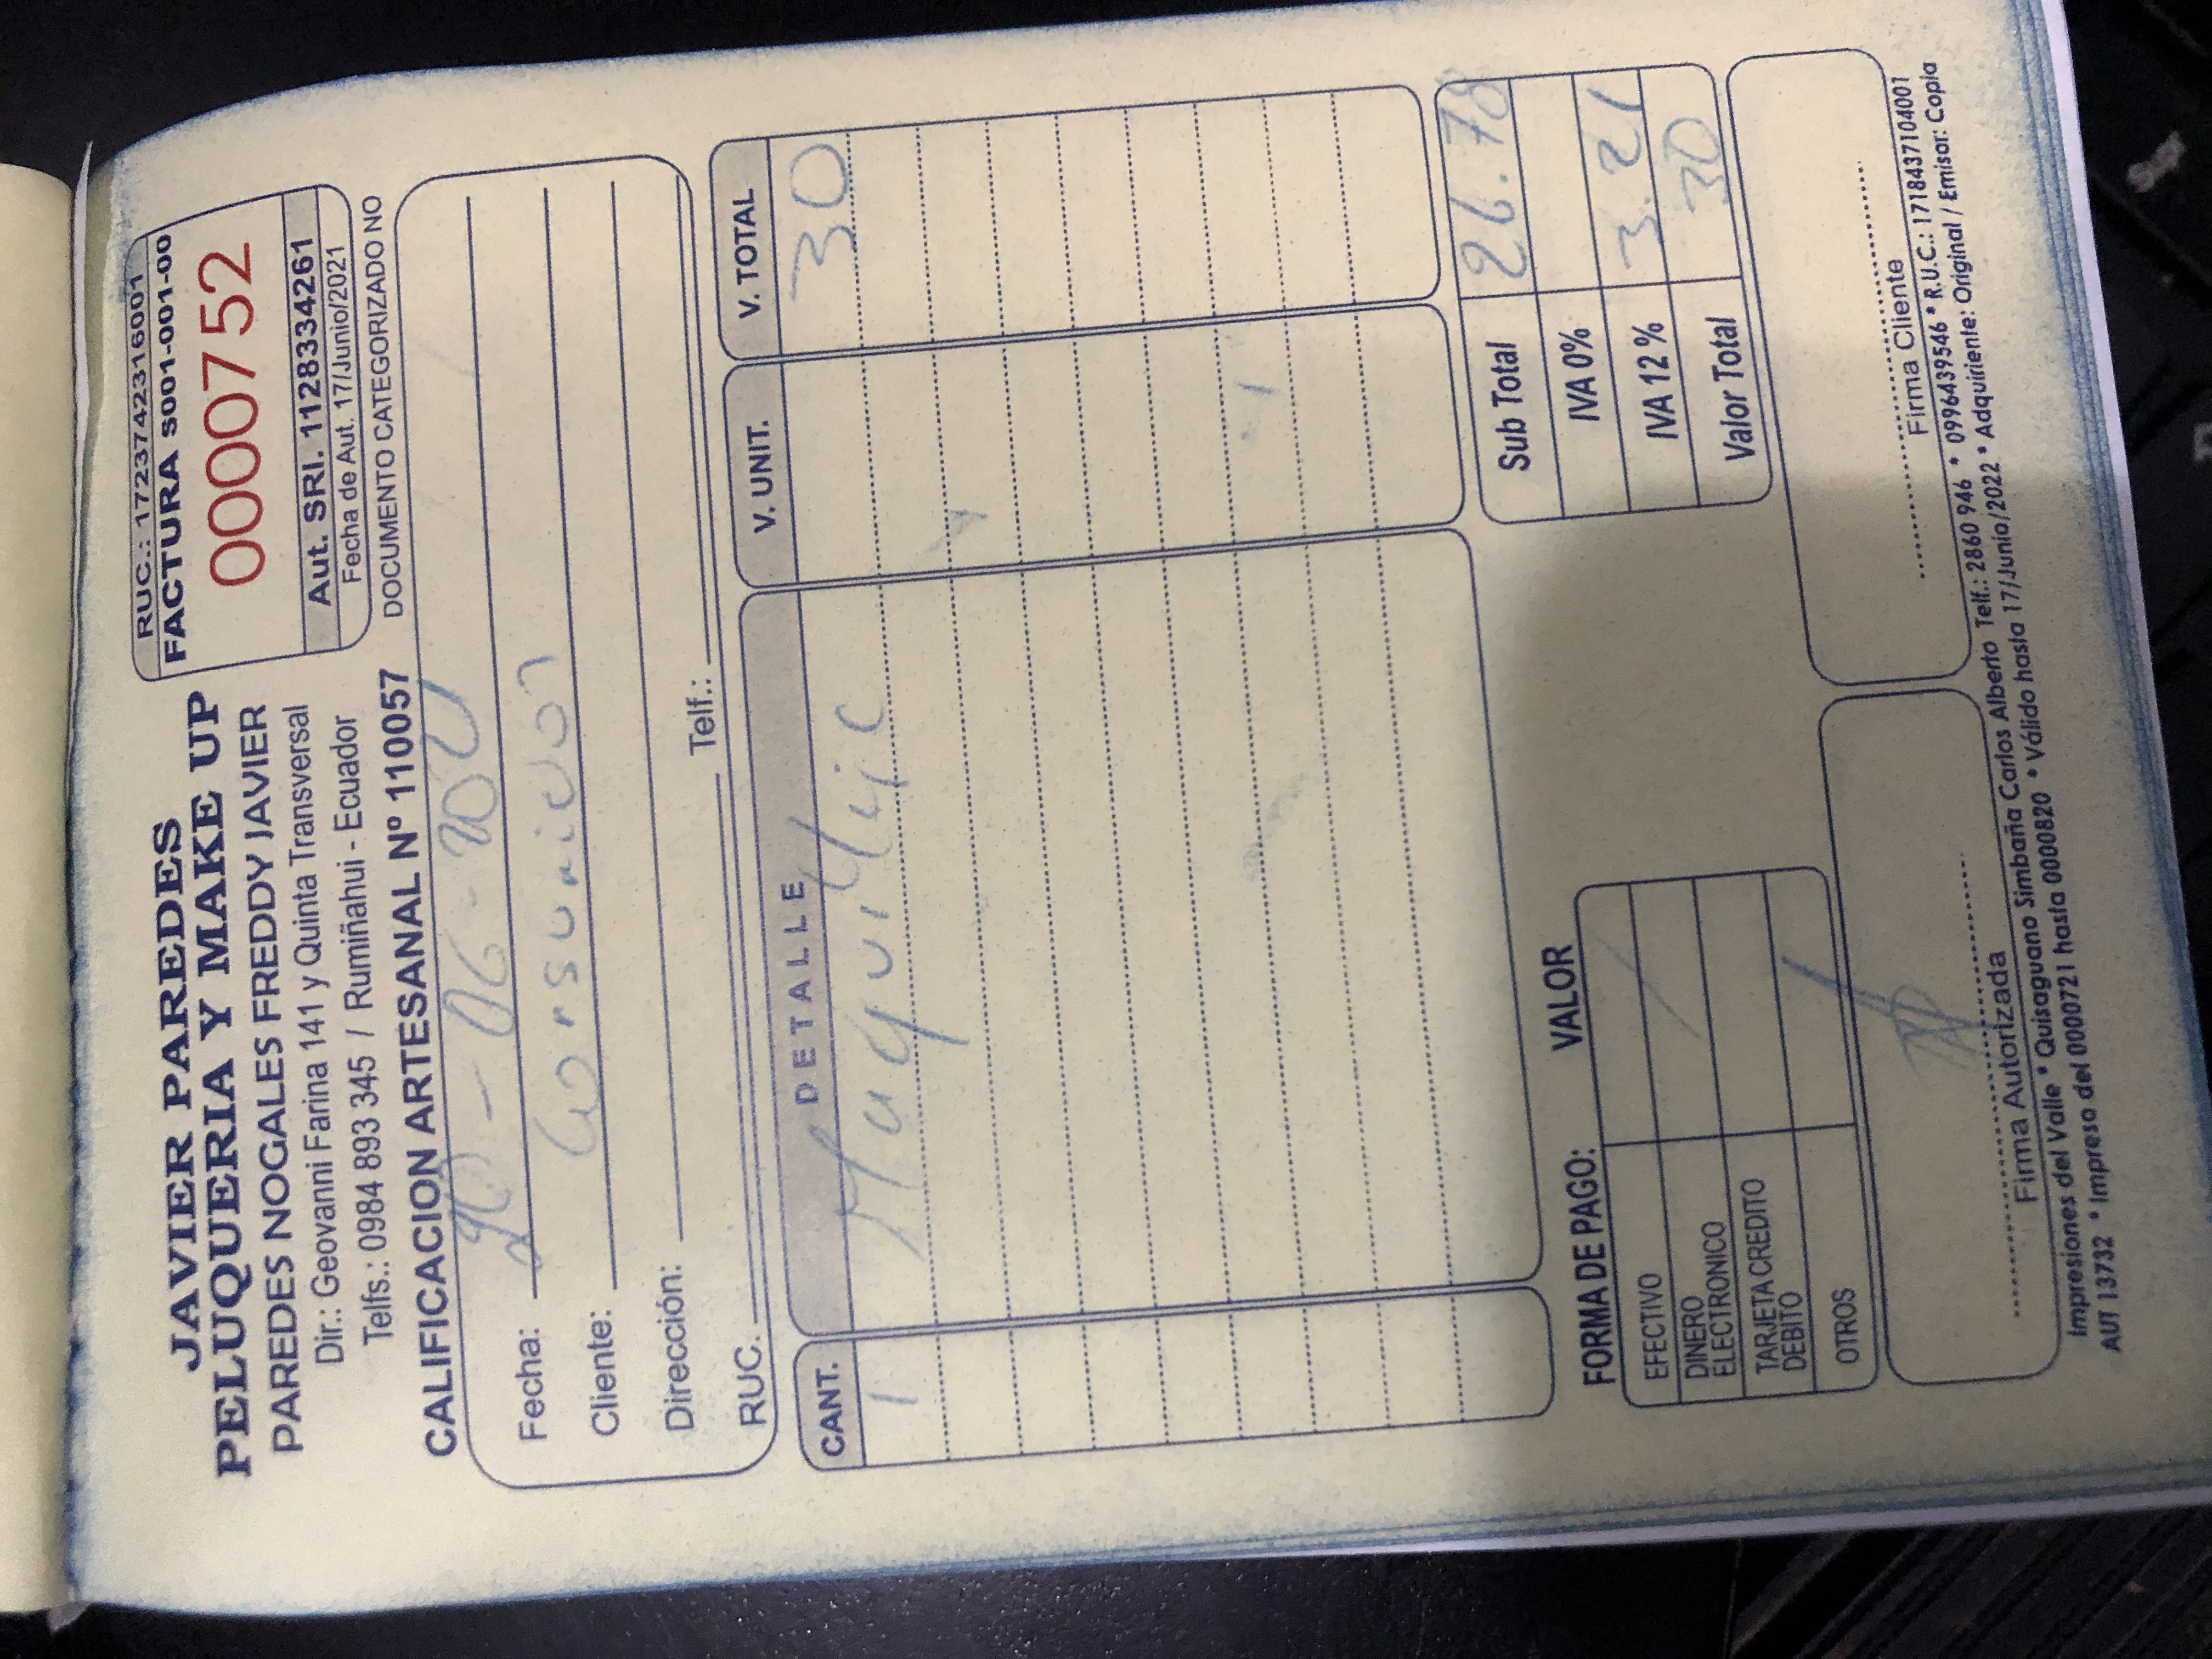 JAVIER PAREDES
PELUQUERIA Y MAKE UP
PAREDES NOGALES FREDDY JAVIER
Dir.: Geovanni Farina 141 y Quinta Transversal
Telfs.: 0984 893 345 / Rumiñahui - Ecuador
CALIFICACION ARTESANAL Nº 110057
RUC.: 1723742316001
FACTURA S001-001-00
0000752
Aut. SRI. 1128334261
Fecha de Aut. 17/Junio/2021
DOCUMENTO CATEGORIZADO NO
Fecha: 20-06-2021
Cliente: Consumidor
Dirección:
RUC. Telf.:
CANT. DETALLE V. UNIT. V. TOTAL
1 Maquillaje 30
Sub Total 26.78
IVA 0%
IVA 12 % 3.21
Valor Total 30
FORMA DE PAGO: VALOR
EFECTIVO
DINERO
ELECTRONICO
TARJETA CREDITO
DEBITO
OTROS
Firma Autorizada
Firma Cliente
Impresiones del Valle * Quisaguano Simbaña Carlos Alberto Telf.: 2860 946 * 0996439546 * R.U.C.: 1718437104001
AUT 13732 * Impreso del 0000721 hasta 0000820 * Válido hasta 17/Junio/2022 * Adquiriente: Original / Emisor: Copia